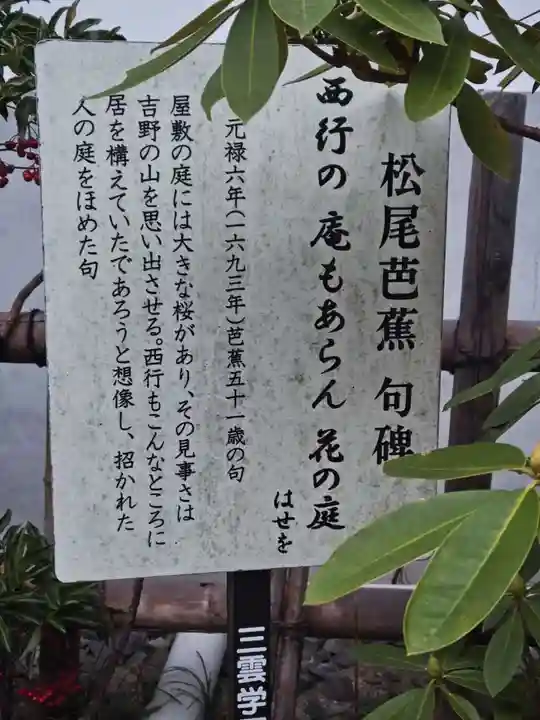 松尾芭蕉 句碑
西行の 庵もあらん 花の庭
はせを
元禄六年(一六九三年)芭蕉五十一歳の句
屋敷の庭には大きな桜があり、その見事さは
吉野の山を思い出させる。西行もこんなところに
居を構えていたであろうと想像し、招かれた
人の庭をほめた句
三雲学